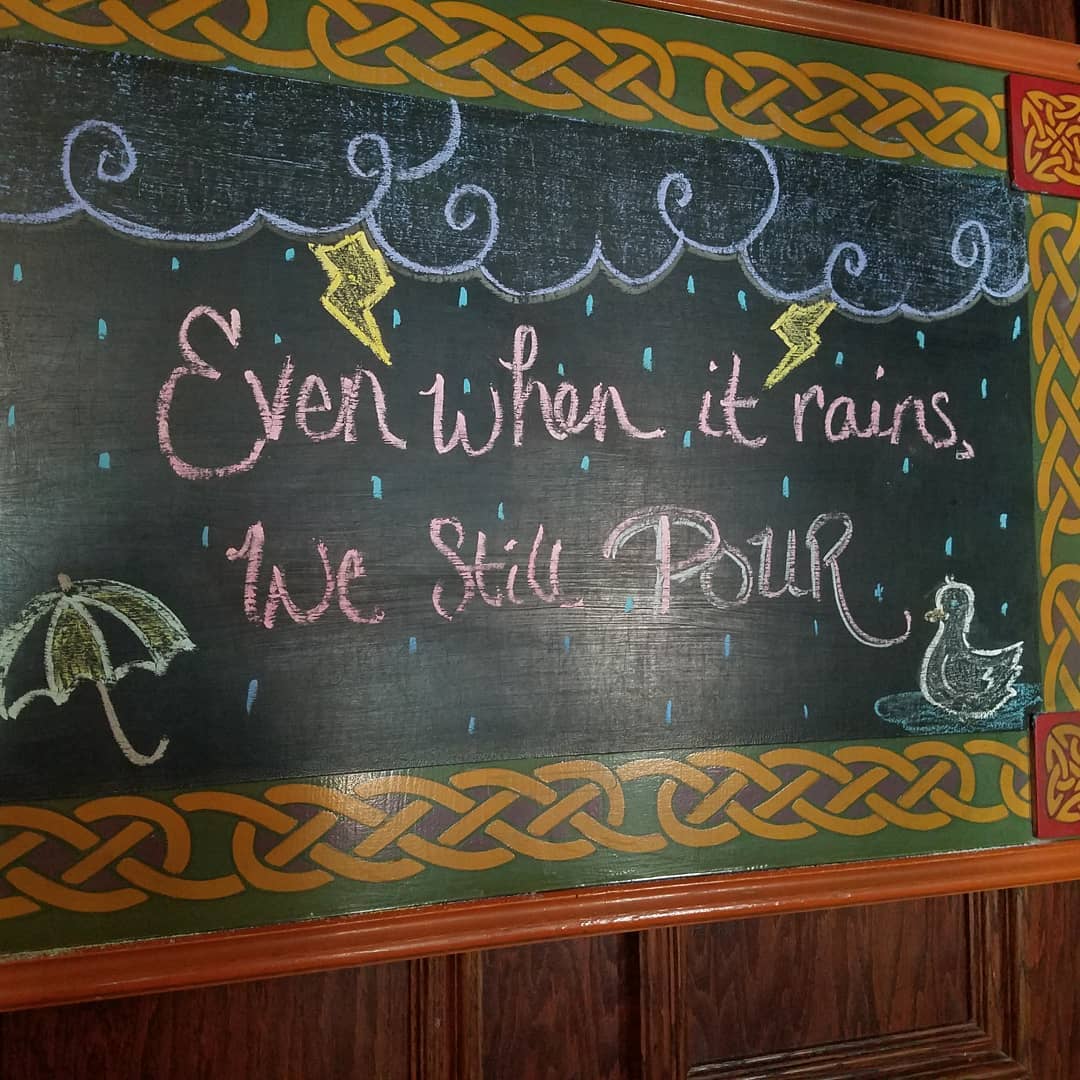 Even when it rains,
We Still POUR